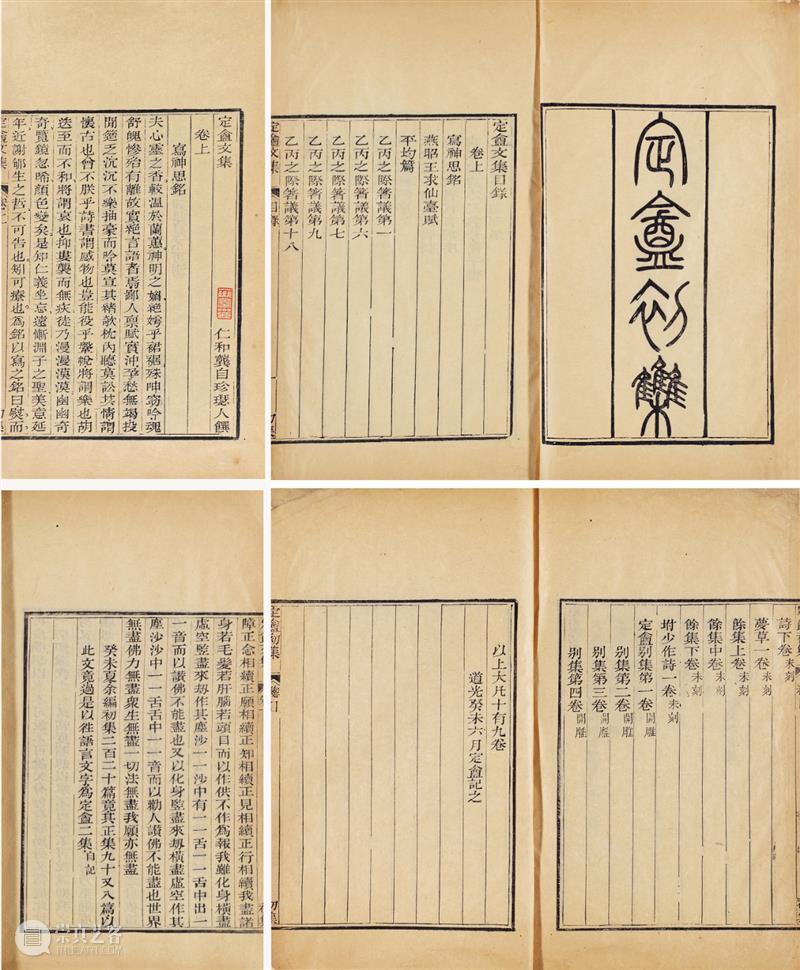 定盦初集
定盦文集目錄
卷上
寫神思銘
燕昭王求仙臺賦
平均篇
乙丙之際箸議第一
乙丙之際箸議第六
乙丙之際箸議第七
乙丙之際箸議第九
乙丙之際箸議第十八
定盦文集
目錄
初集
定盦文集
卷上
仁和龔自珍璱人饌
寫神思銘
夫心靈之香較溫於蘭蕙神明之媚絕嫮乎裙裾殊呻窈吟魂
舒魄慘殆有離故實絕言語者焉鄙人稟賦實沖孕愁無竭投
閒簉乏沉沉不樂抽豪而吟莫宣其緒欹枕內聽莫訟其情謂
懷古也曾不朕乎詩書謂感物也豈能役乎鞶帨將謂樂也胡
迭至而不和將謂哀也抑屢襲而無疚徒乃漫漫漠漠幽幽奇
奇覽鏡忽唏顏色變矣是知仁義坐忘遠慚淵子之聖美意延
年近謝郇生之哲不可告也矧可療也為銘以寫之銘曰熨而
定盦文集
卷上
初集
詩下卷未刻
夢草一卷未刻
餘集上卷未刻
餘集中卷未刻
餘集下卷未刻
坿少作詩一卷未刻
定盦別集第一卷開雕
別集第二卷開雕
別集第三卷開雕
別集第四卷開雕
以上大凡十有九卷
道光癸未六月定盦記之
定盦初集
總目
初集
障正念相續正願相續正知相續正見相續正行相續我盡諸
身若毛髮若肝腦若頭目而以作供不作為報我雖化身橫盡
虛空竪盡來刧作其塵沙一一沙中有一一舌一一舌中出一
一音而以讚佛不能盡也又以化身竪盡來刧橫盡虛空作其
塵沙沙中一一舌舌中一一音而以勸人讚佛不能盡也世界
無盡佛力無盡衆生無盡一切法無盡我願亦無盡
癸未夏余編初集二百二十篇竟其正集九十又八篇以
此文竟過是以徃語言文字為定盦二集自記
崇真艺客